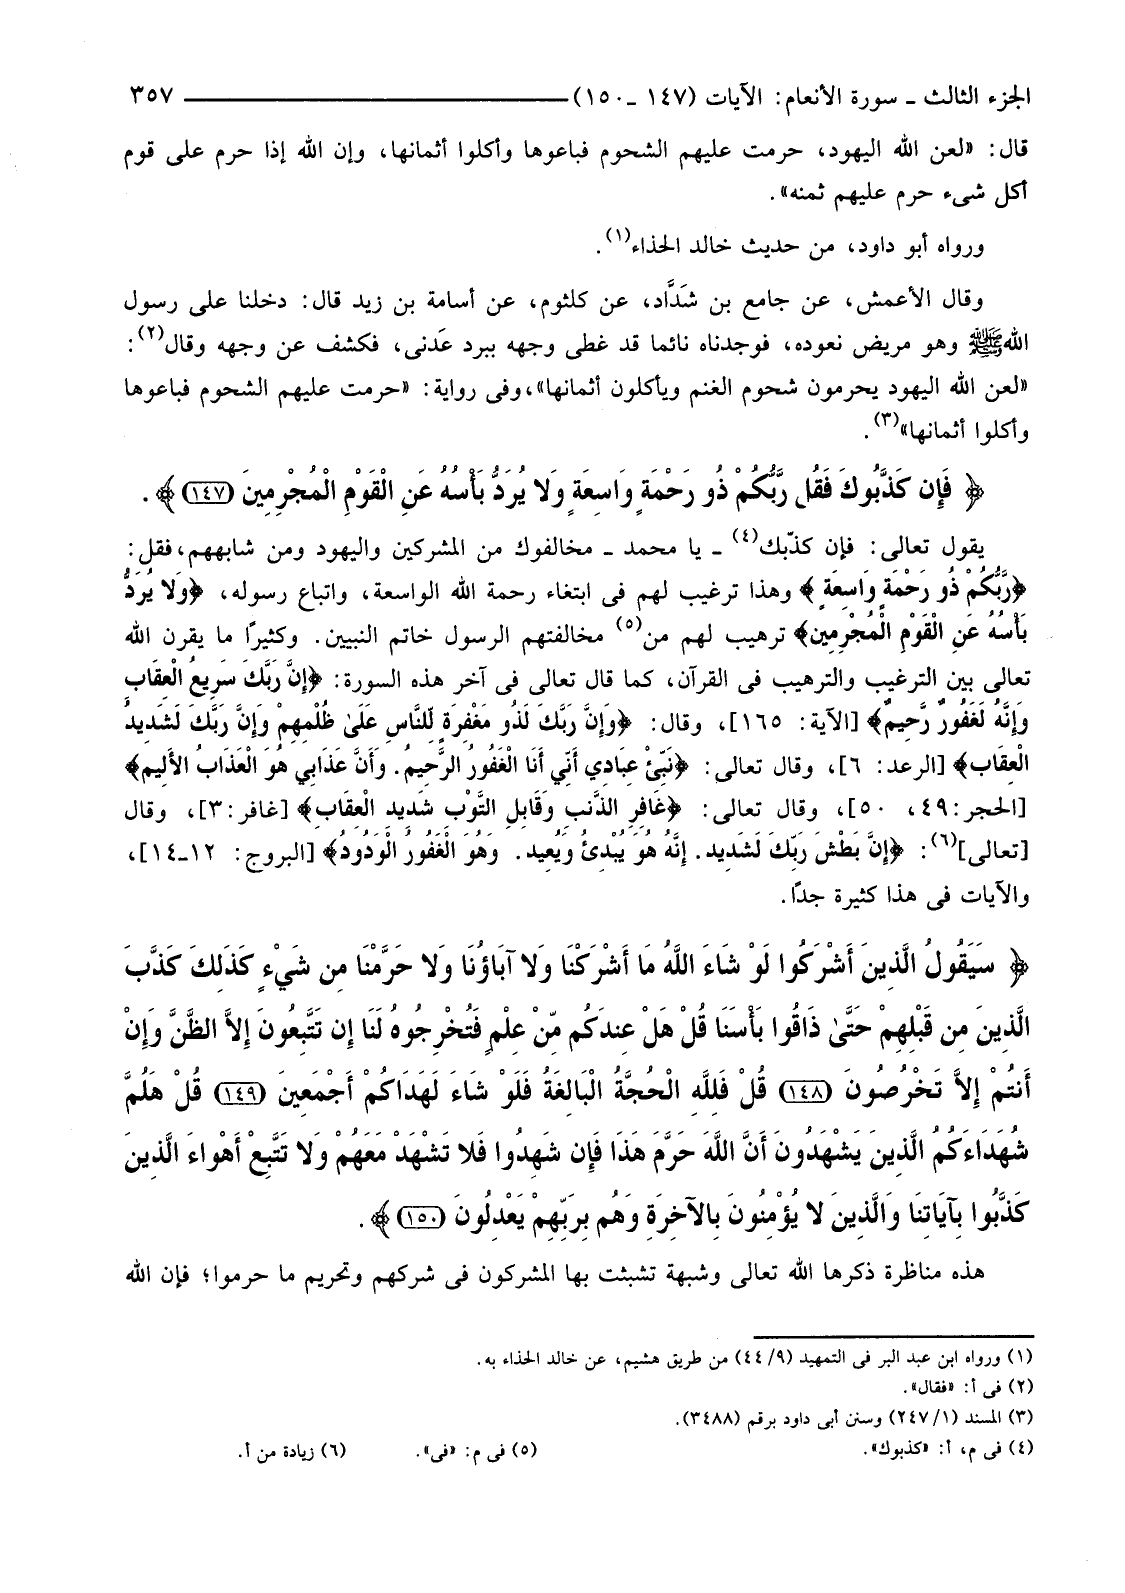 الجزء الثالث ـ سورة الأنعام: الآيات (١٤٧ ـ ١٥٠) ٣٥٧
قال: «لعن الله اليهود، حرمت عليهم الشحوم فباعوها وأكلوا أثمانها، وإن الله إذا حرم على قوم
أكل شىء حرم عليهم ثمنه».
ورواه أبو داود، من حديث خالد الحذاء(١).
وقال الأعمش، عن جامع بن شَدَّاد، عن كلثوم، عن أسامة بن زيد قال: دخلنا على رسول
الله ﷺ وهو مريض نعوده، فوجدناه نائما قد غطى وجهه ببرد عَدنى، فكشف عن وجهه وقال(٢):
«لعن الله اليهود يحرمون شحوم الغنم ويأكلون أثمانها»،وفى رواية: «حرمت عليهم الشحوم فباعوها
وأكلوا أثمانها»(٣).
﴿ فَإِن كَذَّبُوكَ فَقُل رَّبُّكُمْ ذُو رَحْمَةٍ وَاسِعَةٍ وَلا يُرَدُّ بَأْسُهُ عَنِ الْقَوْمِ الْمُجْرِمِينَ (١٤٧) ﴾.
يقول تعالى: فإن كذّبك(٤) ـ يا محمد ـ مخالفوك من المشركين واليهود ومن شابههم،فقل:
﴿رَّبُّكُمْ ذُو رَحْمَةٍ وَاسِعَةٍ ﴾ وهذا ترغيب لهم فى ابتغاء رحمة الله الواسعة، واتباع رسوله، ﴿وَلا يُرَدُّ
بَأْسُهُ عَنِ الْقَوْمِ الْمُجْرِمِينَ﴾ ترهيب لهم من(٥) مخالفتهم الرسول خاتم النبيين. وكثيرًا ما يقرن الله
تعالى بين الترغيب والترهيب فى القرآن، كما قال تعالى فى آخر هذه السورة: ﴿إِنَّ رَبَّكَ سَرِيعُ الْعِقَابِ
وَإِنَّهُ لَغَفُورٌ رَّحِيمٌ﴾ [الآية: ١٦٥]، وقال: ﴿وَإِنَّ رَبَّكَ لَذُو مَغْفِرَةٍ لِّلنَّاسِ عَلَىٰ ظُلْمِهِمْ وَإِنَّ رَبَّكَ لَشَدِيدُ
الْعِقَابِ﴾ [الرعد: ٦]، وقال تعالى: ﴿نَبِّئْ عِبَادِي أَنِّي أَنَا الْغَفُورُ الرَّحِيمُ. وَأَنَّ عَذَابِي هُوَ الْعَذَابُ الأَلِيمُ﴾
[الحجر:٤٩، ٥٠]، وقال تعالى: ﴿غَافِرِ الذَّنبِ وَقَابِلِ التَّوْبِ شَدِيدِ الْعِقَابِ﴾ [غافر:٣]، وقال
[تعالى](٦): ﴿إِنَّ بَطْشَ رَبِّكَ لَشَدِيدٌ. إِنَّهُ هُوَ يُبْدِئُ وَيُعِيدُ. وَهُوَ الْغَفُورُ الْوَدُودُ﴾ [البروج: ١٢ـ١٤]،
والآيات فى هذا كثيرة جدًا.
﴿ سَيَقُولُ الَّذِينَ أَشْرَكُوا لَوْ شَاءَ اللَّهُ مَا أَشْرَكْنَا وَلا آبَاؤُنَا وَلا حَرَّمْنَا مِن شَيْءٍ كَذَلِكَ كَذَّبَ
الَّذِينَ مِن قَبْلِهِمْ حَتَّىٰ ذَاقُوا بَأْسَنَا قُلْ هَلْ عِندَكُم مِّنْ عِلْمٍ فَتُخْرِجُوهُ لَنَا إِن تَتَّبِعُونَ إِلاَّ الظَّنَّ وَإِنْ
أَنتُمْ إِلاَّ تَخْرُصُونَ (١٤٨) قُلْ فَلِلَّهِ الْحُجَّةُ الْبَالِغَةُ فَلَوْ شَاءَ لَهَدَاكُمْ أَجْمَعِينَ (١٤٩) قُلْ هَلُمَّ
شُهَدَاءَكُمُ الَّذِينَ يَشْهَدُونَ أَنَّ اللَّهَ حَرَّمَ هَذَا فَإِن شَهِدُوا فَلا تَشْهَدْ مَعَهُمْ وَلا تَتَّبِعْ أَهْوَاءَ الَّذِينَ
كَذَّبُوا بِآيَاتِنَا وَالَّذِينَ لا يُؤْمِنُونَ بِالآخِرَةِ وَهُم بِرَبِّهِمْ يَعْدِلُونَ (١٥٠) ﴾.
هذه مناظرة ذكرها الله تعالى وشبهة تشبثت بها المشركون فى شركهم وتحريم ما حرموا؛ فإن الله
(١) ورواه ابن عبد البر فى التمهيد (٩/ ٤٤) من طريق هشيم، عن خالد الحذاء به.
(٢) فى أ: «فقال».
(٣) المسند (١/ ٢٤٧) وسنن أبى داود برقم (٣٤٨٨).
(٤) فى م، أ: «كذبوك». (٥) فى م: «فى». (٦) زيادة من أ.